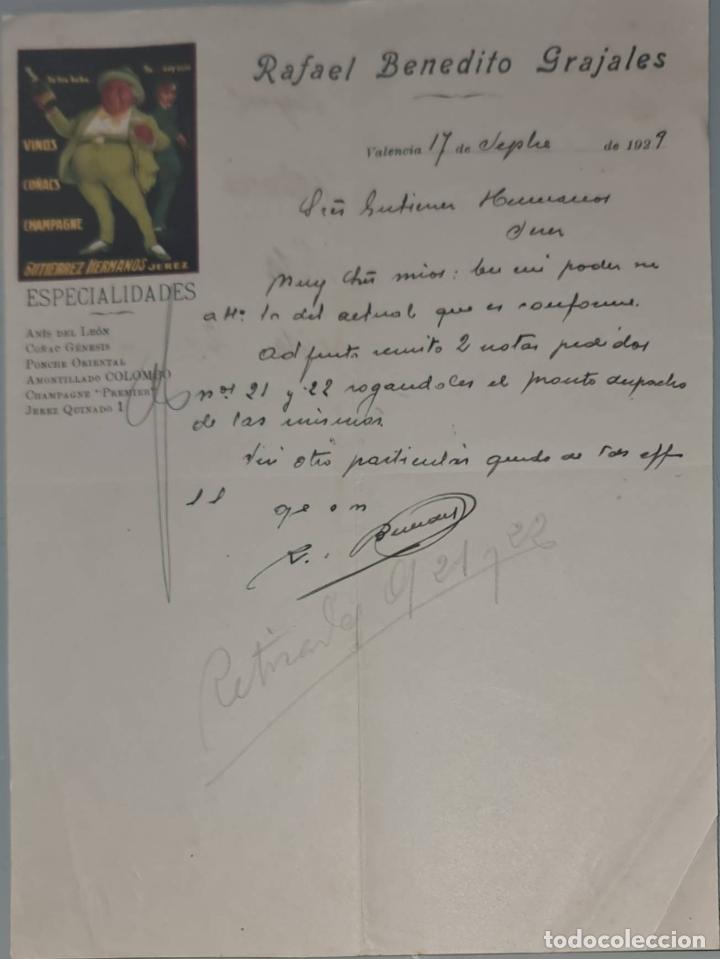 Rafael Benedito Grajales
Valencia 17 de Sepbre de 1929
VINOS
COÑACS
CHAMPAGNE
GUTIERREZ HERMANOS JEREZ
ESPECIALIDADES
ANIS DEL LEÓN
COÑAC GÉNESIS
PONCHE ORIENTAL
AMONTILLADO COLOMBO
CHAMPAGNE "PREMIER"
JEREZ QUINADO
Sres Gutierrez Hermanos
Jerez
Muy Sres mios: en mi poder su
del actual que es conforme.
Adjunta remito 2 notas pedidos
nos. 21 y 22 rogandoles el pronto despacho
de las mismas.
Sin otro particular quedo de Vds affo
s s q e s m
R. Benedito
21 y 22
todocoleccion
todocoleccion.net